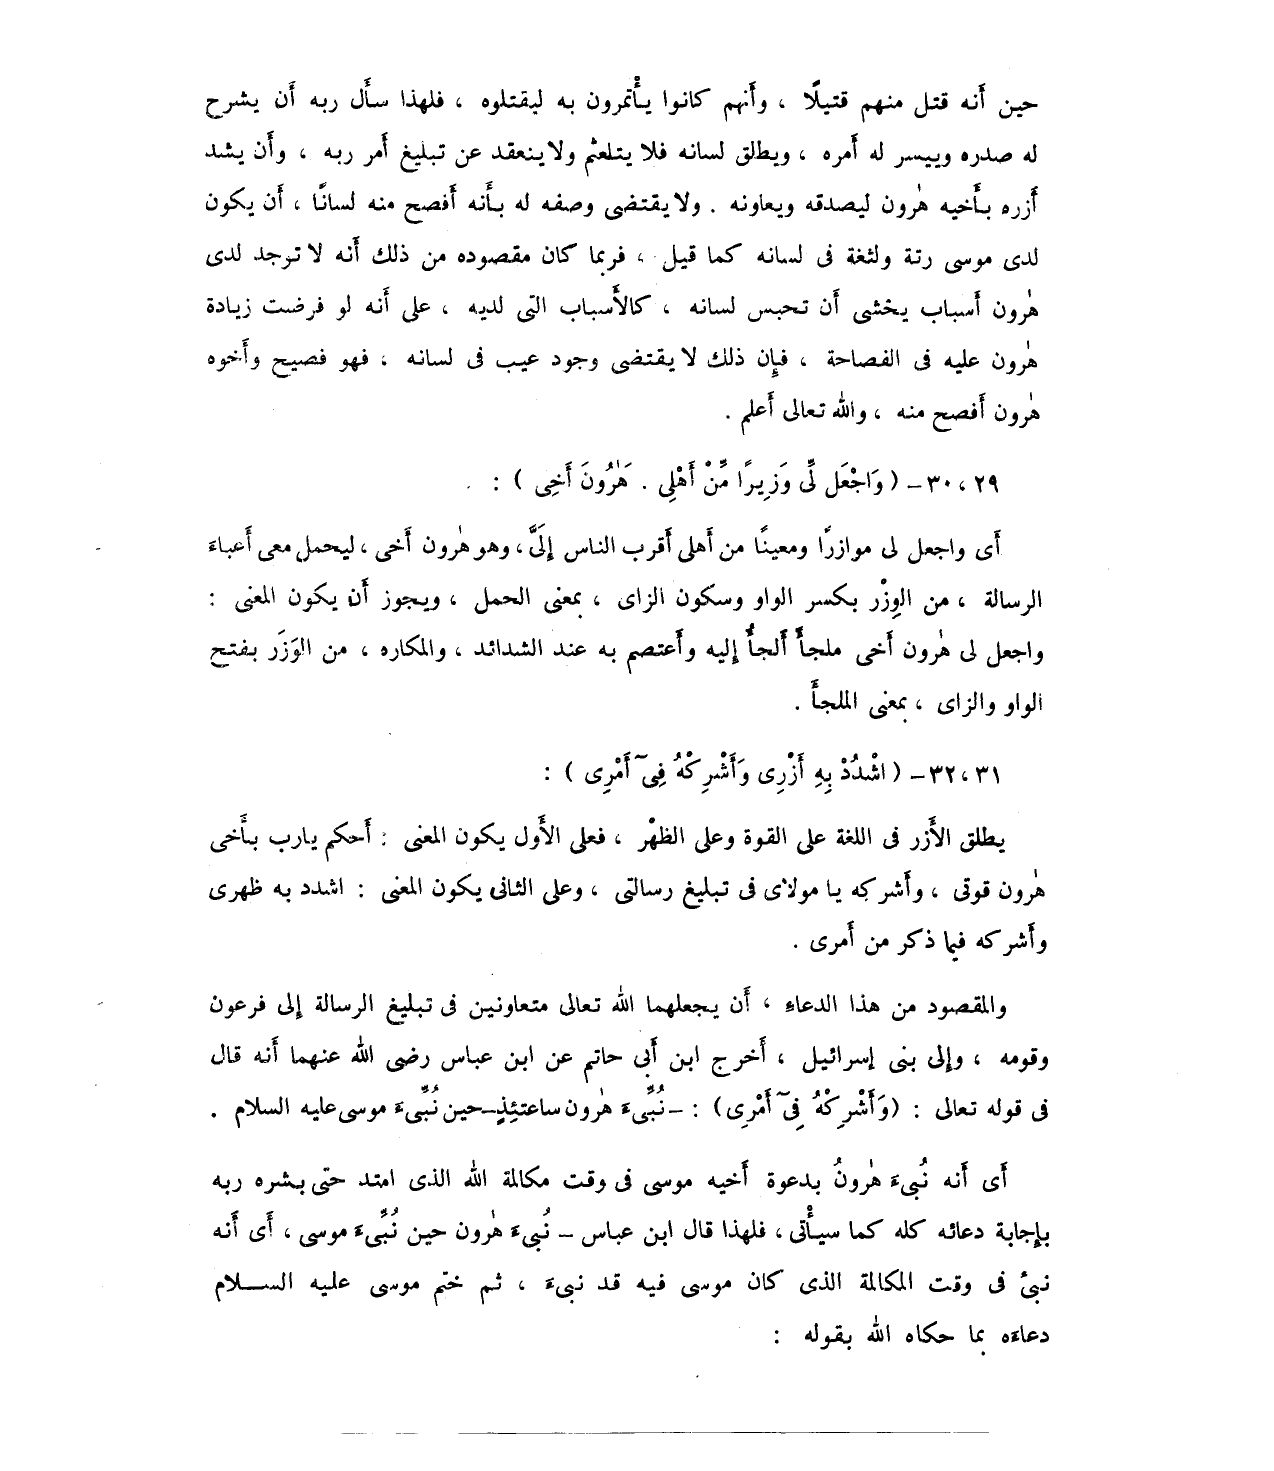 حين أَنه قتل منهم قتيلًا ، وأَنهم كانوا يأْتمرون به ليقتلوه ، فلهذا سأَل ربه أَن يشرح
له صدره وييسر له أَمره ، ويطلق لسانه فلا يتلعثم ولا ينعقد عن تبليغ أَمر ربه ، وأَن يشد
أَزره بأَخيه هٰرون ليصدقه ويعاونه . ولا يقتضى وصفه له بأَنه أَفصح منه لسانًا ، أَن يكون
لدى موسى رتة ولثغة فى لسانه كما قيل ، فربما كان مقصوده من ذلك أَنه لا توجد لدى
هٰرون أَسباب يخشى أَن تحبس لسانه ، كالأَسباب التى لديه ، على أَنه لو فرضت زيادة
هٰرون عليه فى الفصاحة ، فإِن ذلك لا يقتضى وجود عيب فى لسانه ، فهو فصيح وأَخوه
هٰرون أَفصح منه ، والله تعالى أَعلم .
٢٩ ، ٣٠ – ( وَاجْعَل لِّى وَزِيرًا مِّنْ أَهْلِى . هَٰرُونَ أَخِى ) :
أَى واجعل لى موازرًا ومعينًا من أَهلى أَقرب الناس إِلَىَّ ، وهو هٰرون أَخى ، ليحمل معى أَعباءَ
الرسالة ، من الوِزْر بكسر الواو وسكون الزاى ، بمعنى الحمل ، ويجوز أَن يكون المعنى :
واجعل لى هٰرون أَخى ملجأً أَلجأُ إِليه وأَعتصم به عند الشدائد ، والمكاره ، من الوَزَر بفتح
الواو والزاى ، بمعنى الملجأَ .
٣١ ، ٣٢ – ( اشْدُدْ بِهِ أَزْرِى وَأَشْرِكْهُ فِىٓ أَمْرِى ) :
يطلق الأَزر فى اللغة على القوة وعلى الظهْر ، فعلى الأَول يكون المعنى : أَحكم يارب بأَخى
هٰرون قوتى ، وأَشركه يا مولاى فى تبليغ رسالتى ، وعلى الثانى يكون المعنى : اشدد به ظهرى
وأَشركه فيما ذكر من أَمرى .
والمقصود من هذا الدعاءِ ، أَن يجعلهما الله تعالى متعاونين فى تبليغ الرسالة إِلى فرعون
وقومه ، وإِلى بنى إسرائيل ، أَخرج ابن أَبى حاتم عن ابن عباس رضى الله عنهما أَنه قال
فى قوله تعالى : (وَأَشْرِكْهُ فِىٓ أَمْرِى) : – نُبِّىءَ هٰرون ساعتئِذٍ – حين نُبِّىءَ موسى عليه السلام .
أَى أَنه نُبىءَ هٰرونُ بدعوة أَخيه موسى فى وقت مكالمة الله الذى امتد حتى بشره ربه
بإِجابة دعائه كله كما سيأْتى ، فلهذا قال ابن عباس – نُبىءَ هٰرون حين نُبِّىءَ موسى ، أَى أَنه
نبئ فى وقت المكالمة الذى كان موسى فيه قد نبىءَ ، ثم ختم موسى عليه الســـلام
دعاءَه بما حكاه الله بقوله :